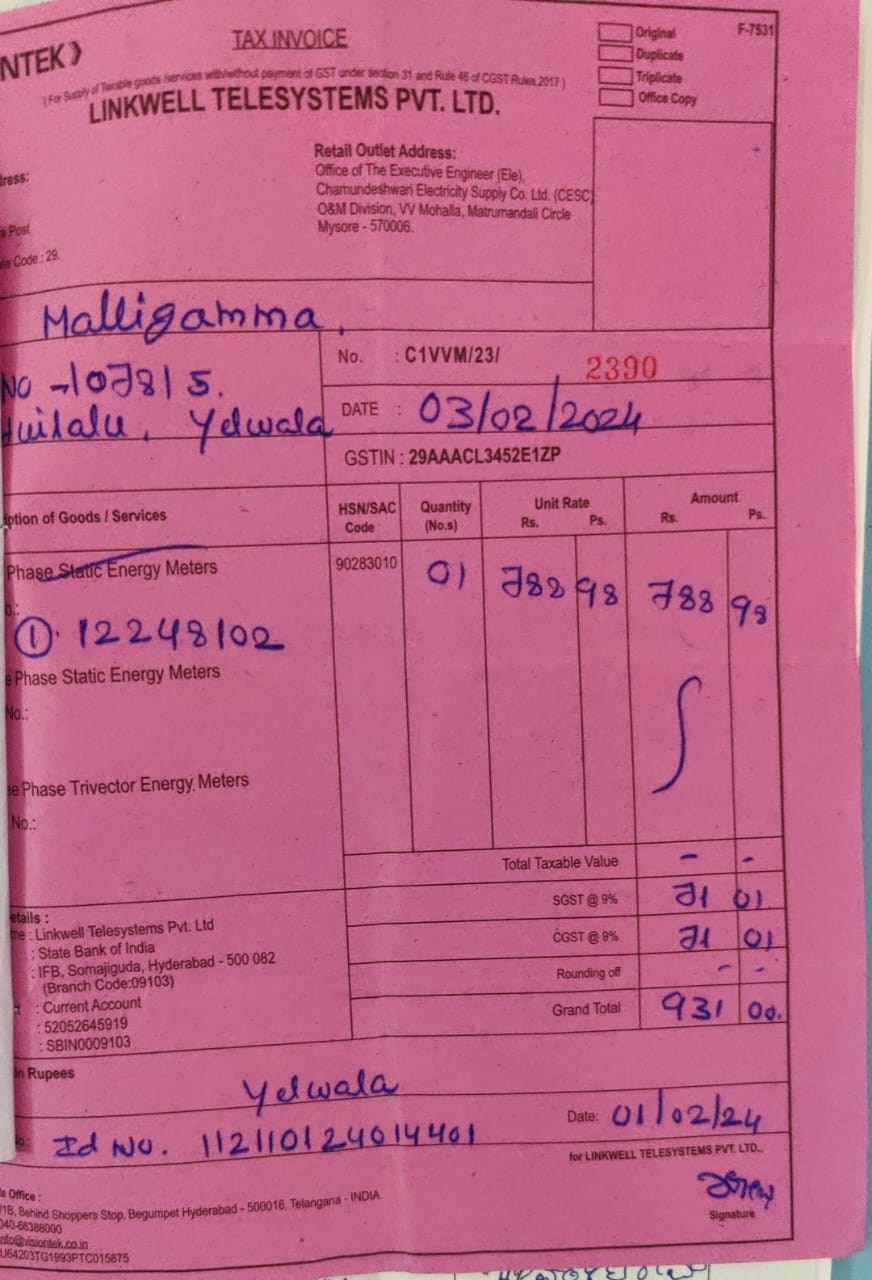 NTEK》
TAX INVOICE
Original
Duplicate
Triplicate
Office Copy
F-7531
(For Supply of Taxable goods /services with/without payment of GST under section 31 and Rule 46 of CGST Rules,2017)
LINKWELL TELESYSTEMS PVT. LTD.
ress:
Post
Code : 29.
Retail Outlet Address:
Office of The Executive Engineer (Ele),
Chamundeshwari Electricity Supply Co. Ltd. (CESC)
O&M Division, VV Mohalla, Matrumandali Circle
Mysore - 570006.
Malligamma,
No. : C1VVM/23/ 2390
NO - 107815.
Huilalu, Yelwala
DATE : 03/02/2024
GSTIN : 29AAACL3452E1ZP
ption of Goods / Services HSN/SAC Code Quantity (No.s) Unit Rate Rs. Ps. Amount Rs. Ps.
Phase Static Energy Meters 90283010 01 788 98 788 98
o.:
① 12248102
e Phase Static Energy Meters
No.:
ee Phase Trivector Energy Meters
No.:
Total Taxable Value - -
SGST @ 9% 71 01
CGST @ 9% 71 01
Rounding off - -
Grand Total 931 00.
etails :
me : Linkwell Telesystems Pvt. Ltd
: State Bank of India
: IFB, Somajiguda, Hyderabad - 500 082
(Branch Code:09103)
: Current Account
: 52052645919
: SBIN0009103
in Rupees
Yelwala
Id No. 112110124014401
Date: 01/02/24
for LINKWELL TELESYSTEMS PVT. LTD.,
Signature
e Office :
/1B, Behind Shoppers Stop, Begumpet Hyderabad - 500016, Telangana - INDIA
040-66388000
nfo@visiontek.co.in
U64203TG1993PTC015875